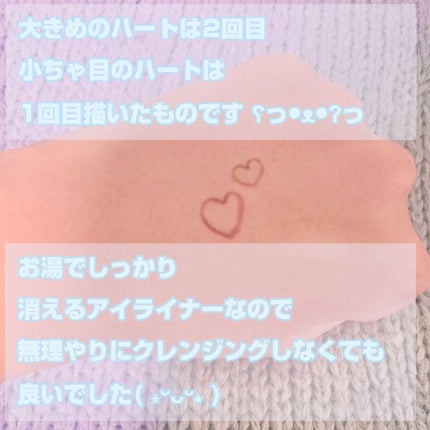 大きめのハートは2回目
小ちゃ目のハートは
1回目描いたものです ʕっ•ᴥ•ʔっ
お湯でしっかり
消えるアイライナーなので
無理やりにクレンジングしなくても
良いでした( ⁎ᵕᴗᵕ⁎ )